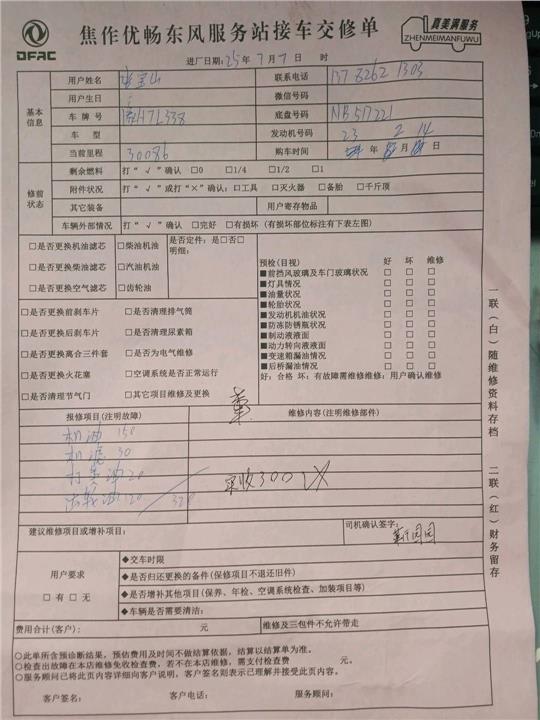 DFAC
焦作优畅东风服务站接车交修单
真美满服务
ZHENMEIMANFUWU
进厂日期:25年7月7日 时
基本信息
用户姓名 宝山 联系电话 137 8262 1303
用户生日 微信号码
车牌号 H7L338 底盘号码 NB517221
车 型 发动机号码 23 2 14
当前里程 30086 购车时间 年 月 日
修前状态
剩余燃料 打“√”确认 □0 □1/4 □1/2 □1
附件状况 打“√”或打“×”确认:□工具 □灭火器 □备胎 □千斤顶
其它装备 用户寄存物品
车辆外部情况 打“√”确认 □完好 □有损坏(有损坏部位标注有下表左图)
□是否更换机油滤芯 □柴油机油 是否定件:是□否□
明细:
□是否更换柴油滤芯 □汽油机油
□是否更换空气滤芯 □齿轮油
预检(目视) 好 坏 维修
■前挡风玻璃及车门玻璃状况 □ □ □
■灯具情况 □ □ □
■油量状况 □ □ □
■轮胎状况 □ □ □
■发动机机油状况 □ □ □
■防冻防锈瓶状况 □ □ □
■制动液液面 □ □ □
■动力转向液液面 □ □ □
■变速箱漏油情况 □ □ □
■后桥漏油情况 □ □ □
好:合格 坏:有故障需维修维修:用户确认维修
□是否更换前刹车片 □是否清理排气筒
□是否更换后刹车片 □是否清理尿素箱
□是否更换离合三件套 □是否为电气维修
□是否更换火花塞 □空调系统是否正常运行
□是否清理节气门 □其它项目维修及更换
报修项目(注明故障) 维修内容(注明维修部件)
机油 150
机滤 30
打黄油 20
齿轮油 120 320
实收300
建议维修项目或增补项目: 司机确认签字:
靳园园
用户要求
□有□无
◆交车时限
◆是否归还更换的备件(保修项目不退还旧件)
◆是否增补其他项目(保养、年检、空调系统检查、加装项目等)
◆车辆是否需要清洁:
费用合计(客户): 元 维修及三包件不允许带走
○此单所含预诊断结果,预估费用及时间不做结算依据,结算以结算单为准。
○检查出故障在本店维修免收检查费,若不在本店维修,需支付检查费 元。
○服务顾问已将此页内容详细向客户说明,客户签名则表示已理解并接受此页内容。
客户签名: 客户电话: 服务顾问:
一联(白)随维修资料存档
二联(红)财务留存